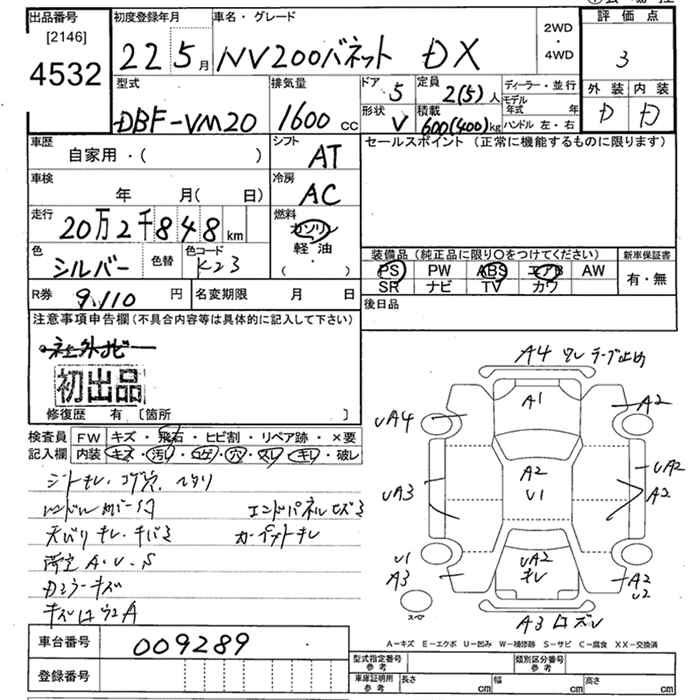 出品番号
[2146]
4532
初度登録年月
22 5月
車名・グレード
NV200バネット DX
2WD
・
4WD
評価点
3
外装 内装
D D
型式
DBF-VM20
排気量
1600 cc
ドア
5
形状
V
定員
2(5)人
積載
600(400)kg
ディーラー・並行
モデル年式 年
ハンドル 左・右
車歴
自家用・( )
シフト
AT
セールスポイント (正常に機能するものに限ります)
車検
年 月( 日)
冷房
AC
走行
20万2千848km
燃料
ガソリン
軽油
・
( )
色
シルバー
色替
色コード
K23
装備品(純正品に限り〇をつけてください)
PS PW ABS エアB AW
SR ナビ TV カワ
新車保証書
有・無
R券
9,110円
名変期限 月 日
後日品
注意事項申告欄(不具合内容等は具体的に記入して下さい)
初出品
修復歴 有 〔箇所 〕
検査員
記入欄
FW キズ・飛石・ヒビ割・リペア跡・×要
内装 キズ・汚レ・コゲ・穴・スレ・キレ・破レ
シートキレ・コゲ穴、ヘタリ
エンドパネルキズ
カーペットキレ
荷室A・U・S
A4 ワレ テープ止め
A1
A2
UA4
A2
U1
UA2
A2
UA3
U1
A3
UA2
キレ
A2
U2
スペア
車台番号
009289
A-キズ E-エクボ U-凹み W-補修跡 S-サビ C-腐食 XX-交換済
登録番号
型式指定番号
参考
類別区分番号
参考
車庫証明用
参考
長さ cm
幅 cm
高さ cm